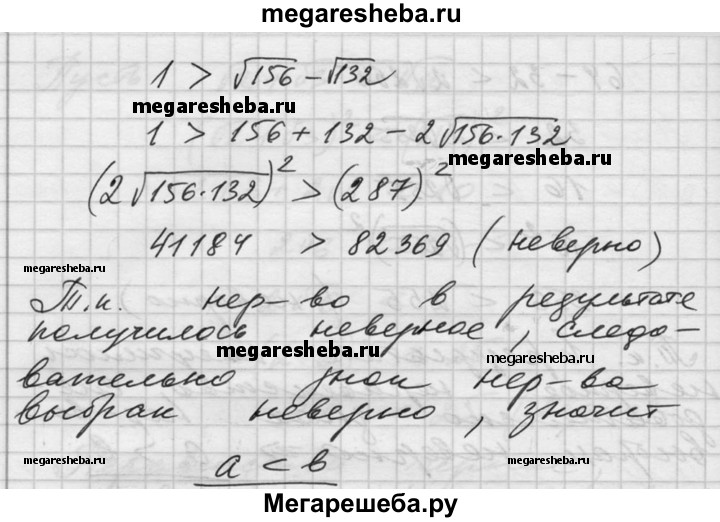 megaresheba.ru
1 > √156 - √132
megaresheba.ru
1 > 156 + 132 - 2√156·132
megaresheba.ru
(2√156·132)² > (287)²
41184 > 82369 (неверно)
megaresheba.ru
megaresheba.ru
Т.к. нер-во в результате
получилось неверное, следо-
megaresheba.ru
megaresheba.ru
вательно знак нер-ва
выбран неверно, значит
megaresheba.ru
a < b
megaresheba.ru
megaresheba.ru
Мегарешеба.ру